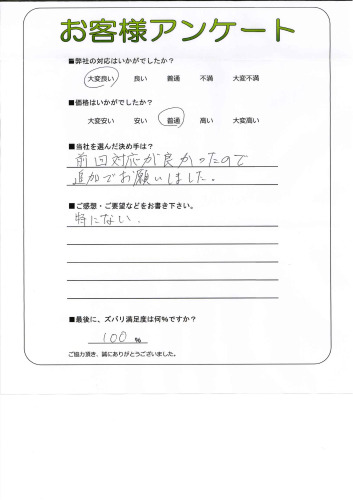 お客様アンケート
■弊社の対応はいかがでしたか？
大変良い 良い 普通 不満 大変不満
■価格はいかがでしたか？
大変安い 安い 普通 高い 大変高い
■当社を選んだ決め手は？
前回対応が良かったので
追加でお願いしました。
■ご感想・ご要望などをお書き下さい。
特にない.
■最後に、ズバリ満足度は何%ですか？
100 %
ご協力頂き、誠にありがとうございました。